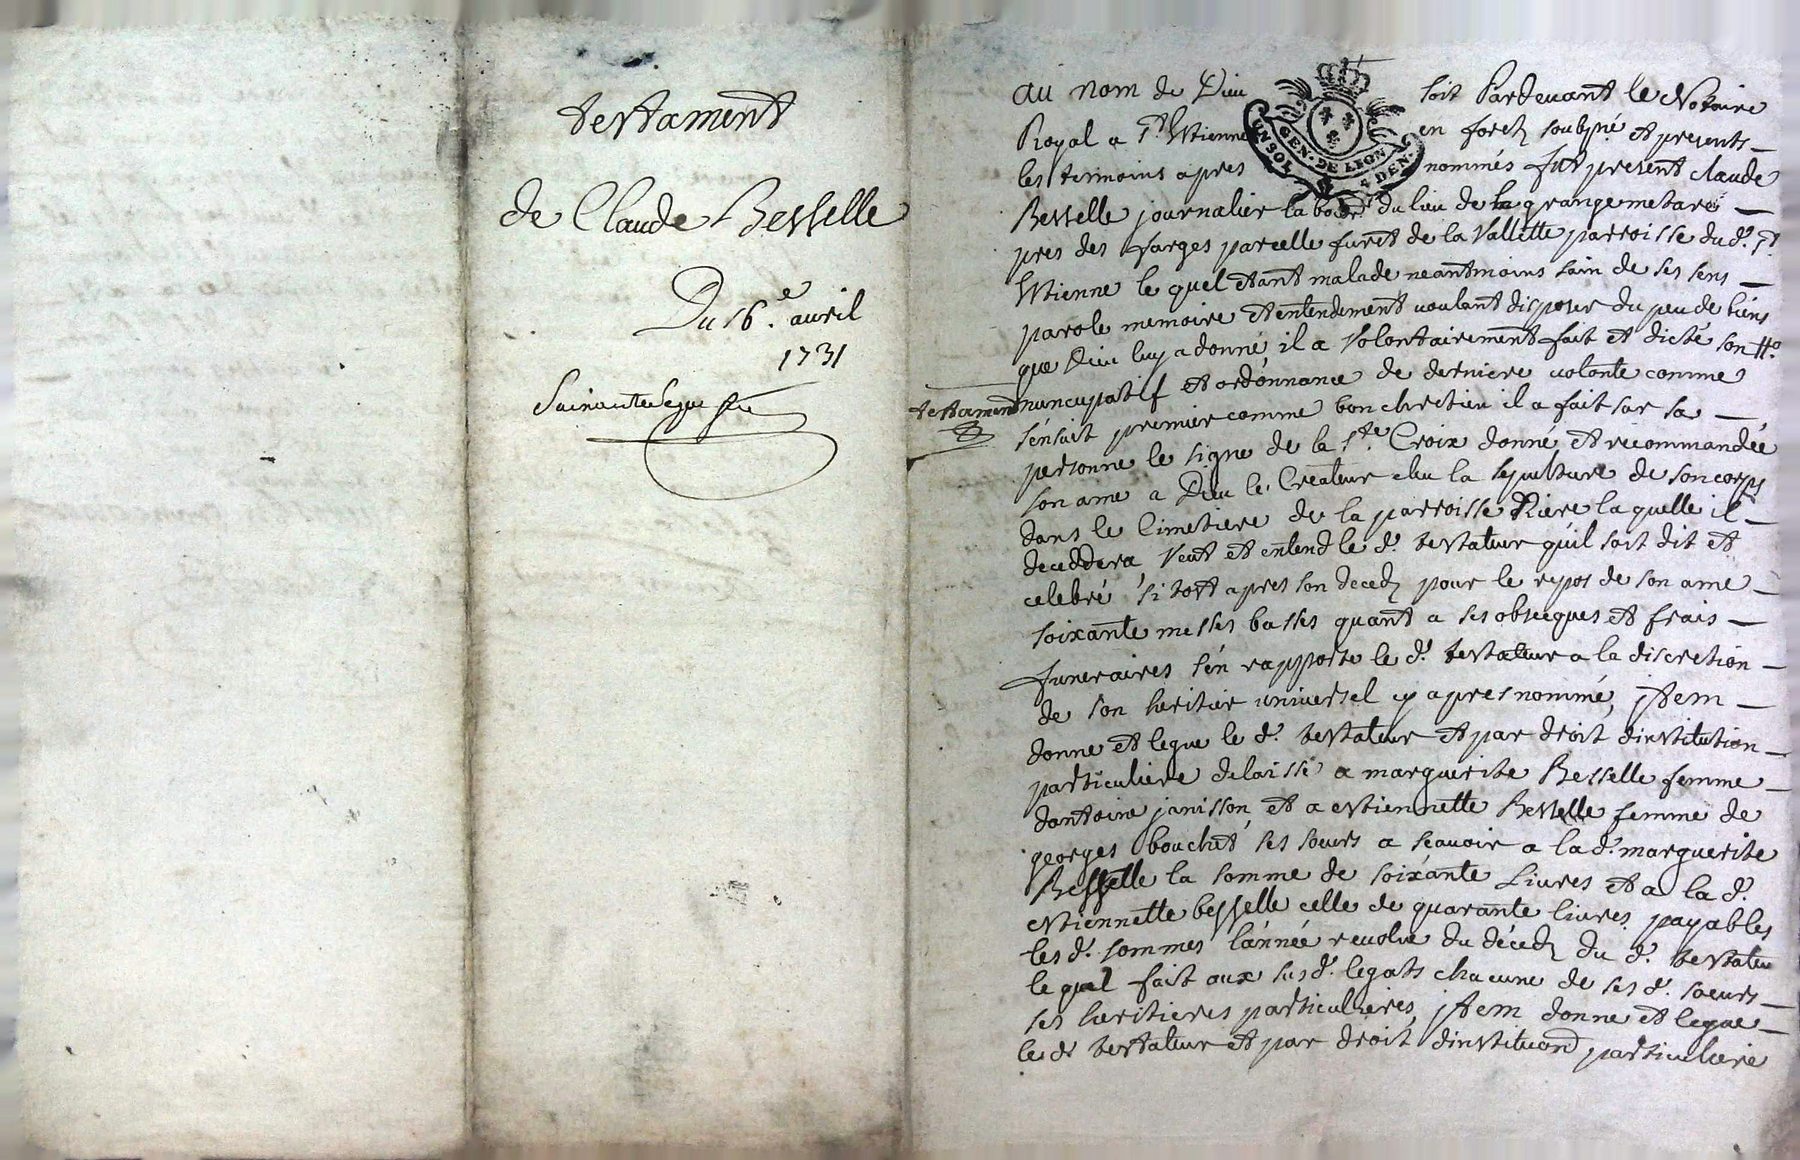 testament
de Claude Besselle
Du 16.e avril
1731
au nom de Dieu soit Pardevant le Notaire
GEN. DE LEON
UN SOL 4 DEN.
Royal a St. Estienne en forez soubsné et presents
les temoins apres nommés fut present claude
Besselle journalier laboureur du lieu de la grange metare
pres des farges parcelle furet de la Vallette parroisse du d. St.
Estienne le quel etant malade neantmoins sain de ses sens
parole memoire et entendement voulant disposer du peu de biens
que Dieu luy a donné, il a volontairement fait et dicté son tt.o
testament
nuncupatif et ordonnance de derniere volonte comme
s'ensuit premier comme bon chretien il a fait sur sa
personne le signe de la Ste. Croix donné et recommandée
son ame a Dieu le Createur elu la sepulture de son corps
dans le Cimetiere de la parroisse Riere laquelle il
deceddera Veut et entend le d. testateur qu'il soit dit et
celebré si tott apres son decedz pour le repos de son ame
soixante messes basses quant a ses obseques et frais
funeraires s'en rapporte le d. testateur a la discretion
de son heritier universel cy apres nommé, item
donne et legue le d. testateur et par droit d'institution
particuliere delaissé a marguerite Besselle femme
dantoine janisson, et a estiennette Besselle femme de
georges bouchet ses soeurs a scavoir a la d. marguerite
Besselle la somme de soixante Livres et a la d.
estiennette besselle celle de quarante livres payables
les d. sommes l'année revolue du décedz du d. testateur
le quel fait aux susd. legats chacune de ses d. soeurs
ses heritieres particulieres, item donne et legue
le d. testateur et par droit d'instituon particuliere